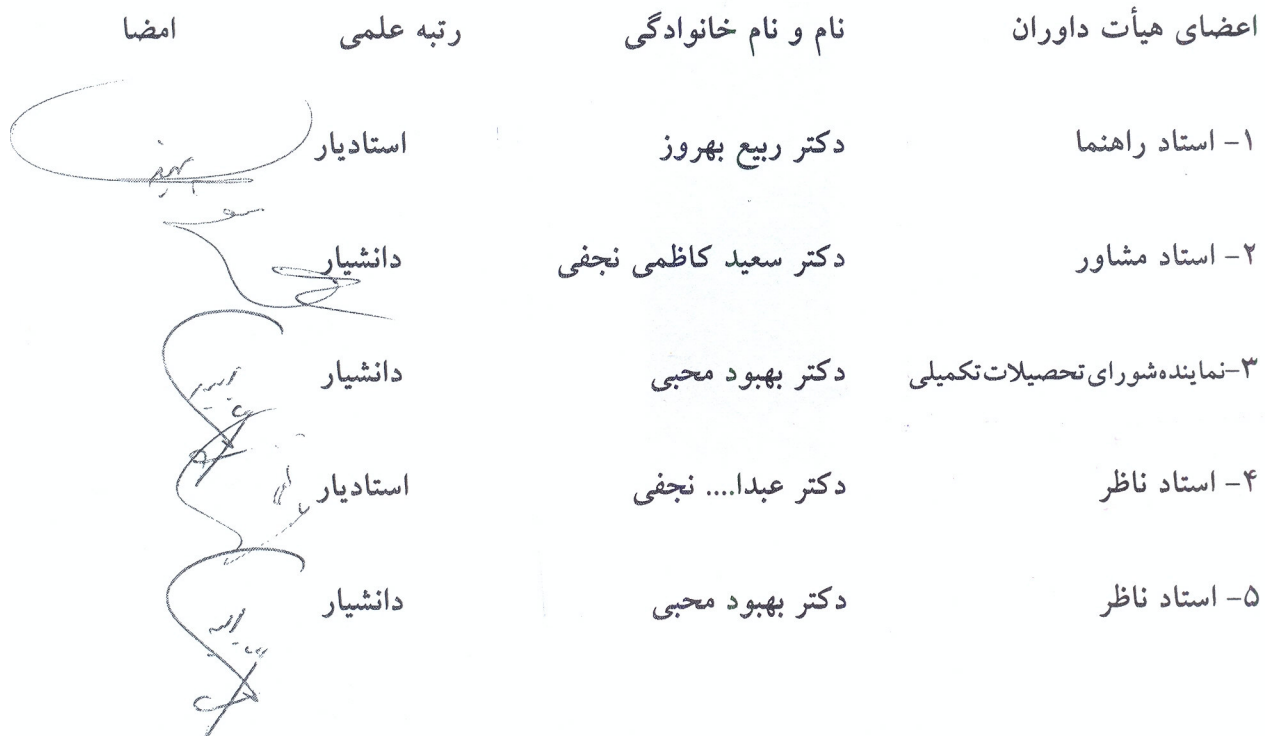 اعضای هیأت داوران نام و نام خانوادگی رتبه علمی امضا
۱- استاد راهنما دکتر ربیع بهروز استادیار
۲- استاد مشاور دکتر سعید کاظمی نجفی دانشیار
۳-نماینده شورای تحصیلات تکمیلی دکتر بهبود محبی دانشیار
۴- استاد ناظر دکتر عبدا.... نجفی استادیار
۵- استاد ناظر دکتر بهبود محبی دانشیار